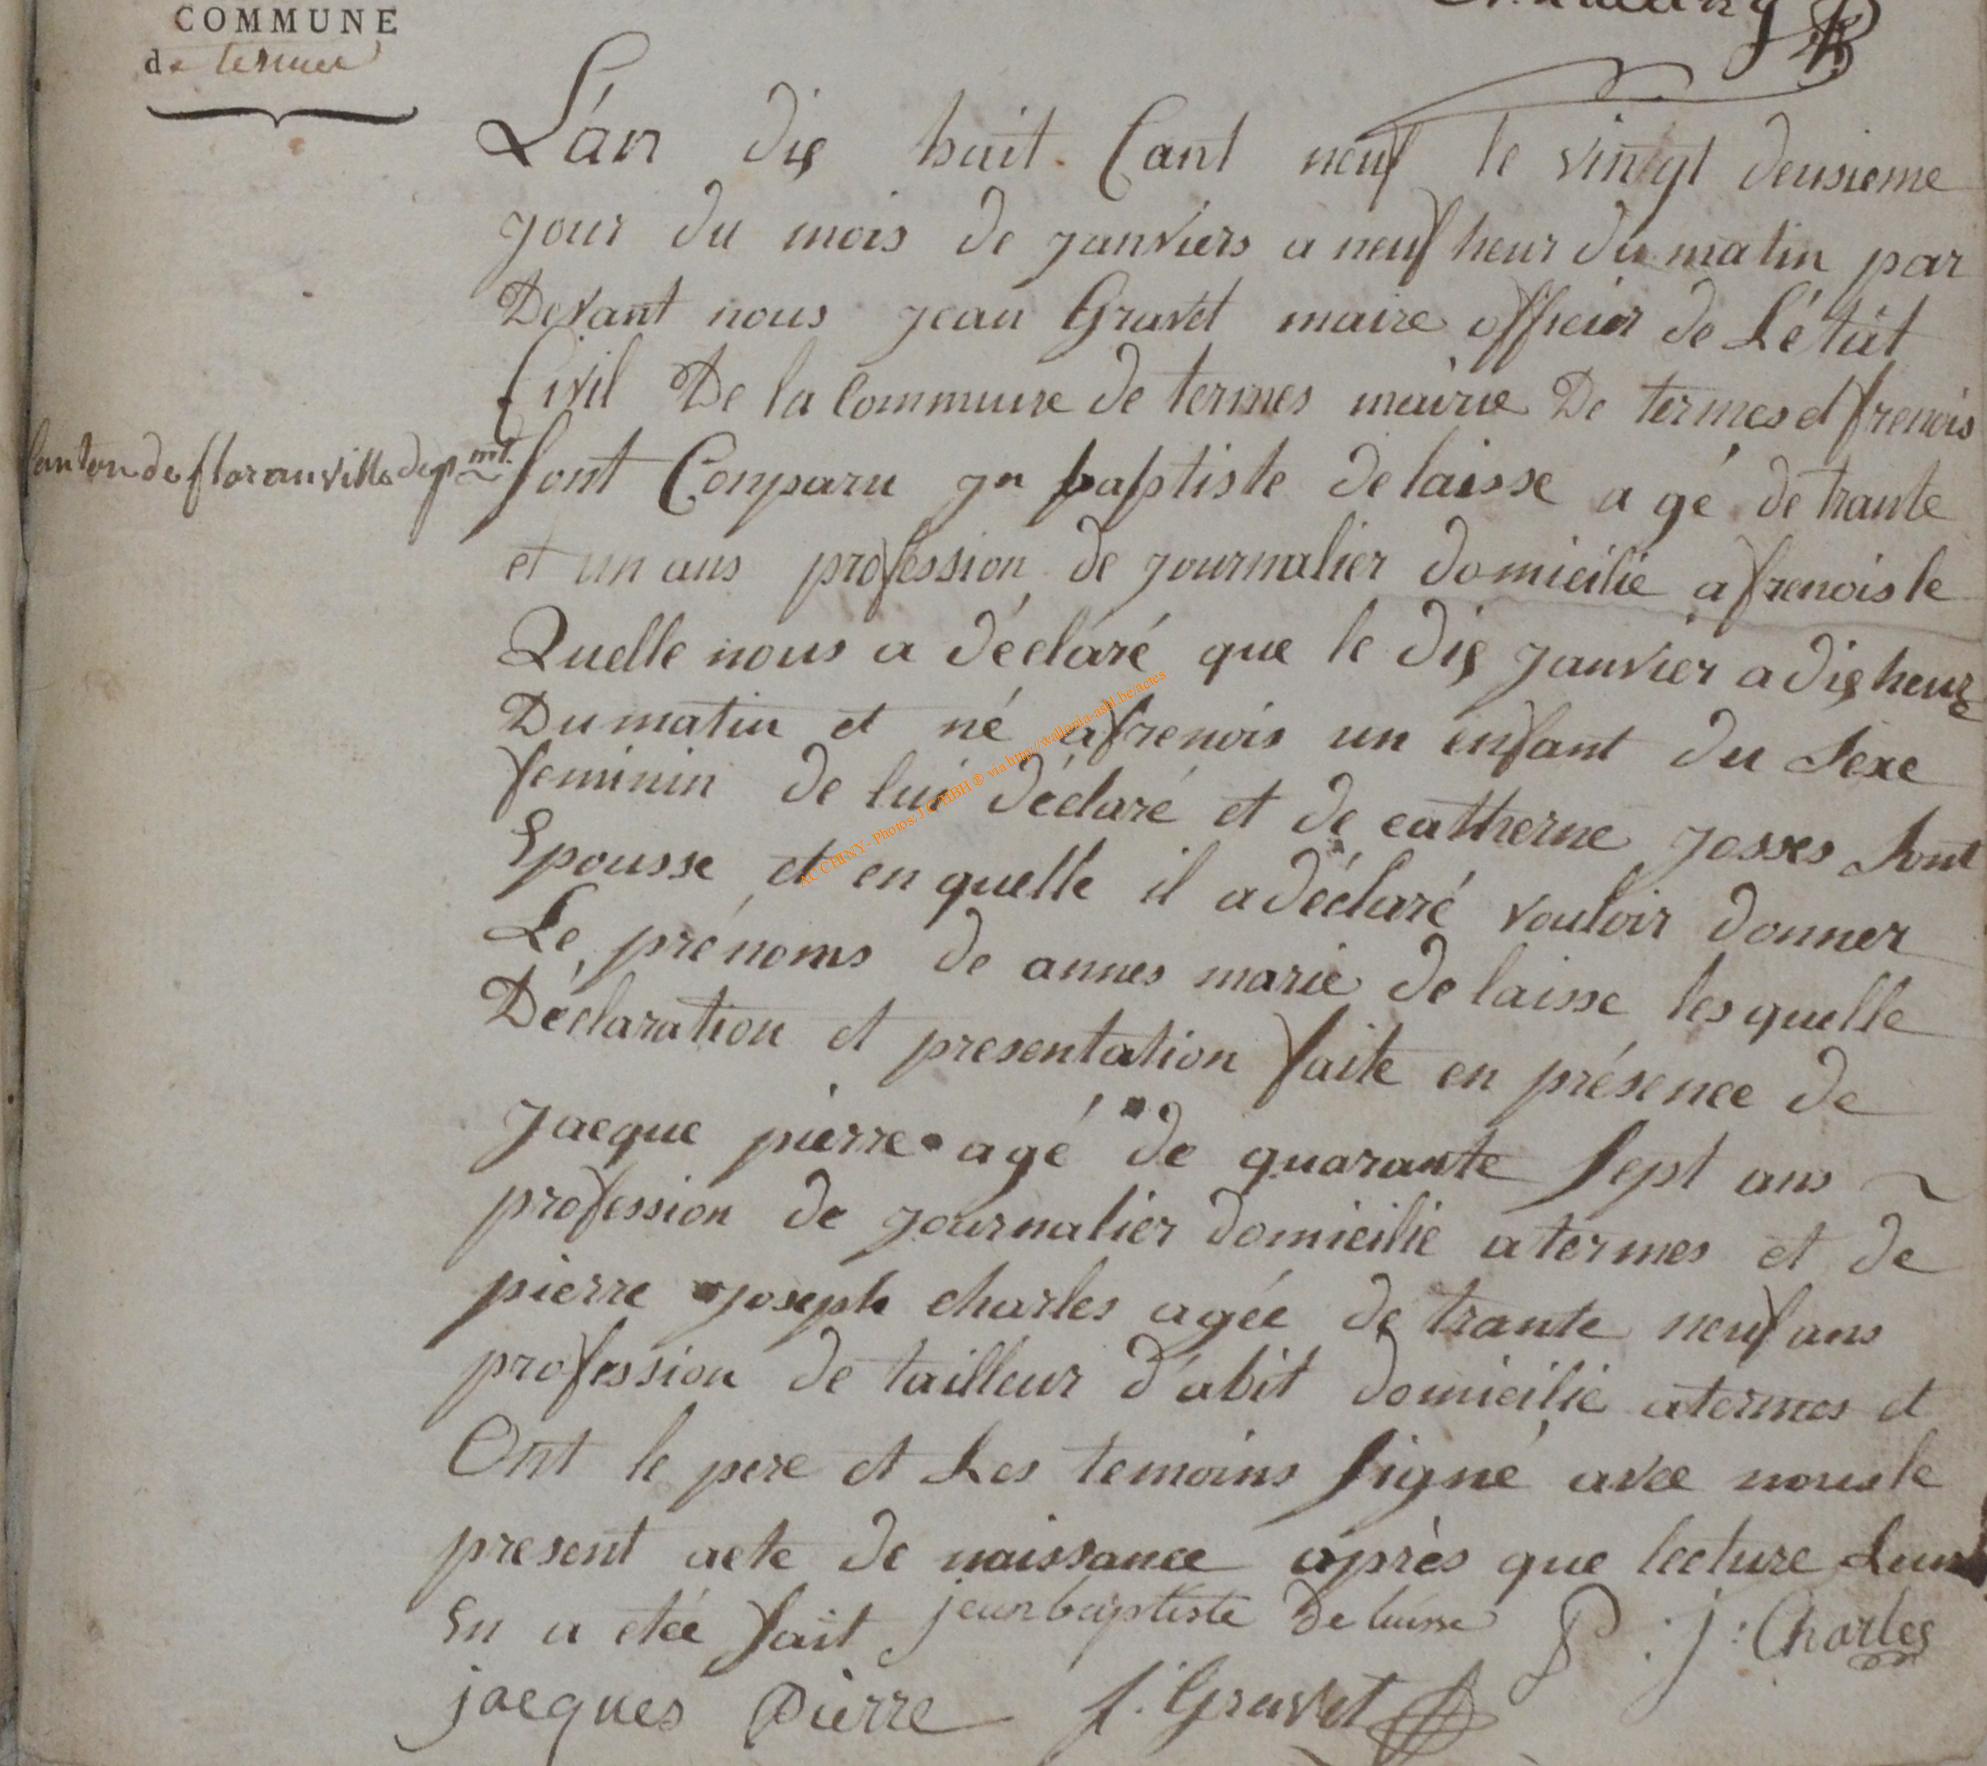 COMMUNE
de termes
L'an dix huit Cant neuf le vingt deusieme
jour du mois de janviers a neuf heur du matin par
Devant nous jean Gravet maire officier de L'état
Civil De la Commune de termes mairie De termes et frenois
Canton de floranville depmt.
Sont Conparu jn baptiste delaisse agé de trante
et un ans profession de journalier domicilié a frenois le
Quelle nous a déclaré que le dix janvier a dix heure
Du matin et né a frenois un enfant du Sexe
feminin de lui déclaré et de catherne josses Sont
Epousse et en quelle il a déclaré vouloir donner
Le prénoms de annes marie de laisse lesquelle
Déclaration et presentation faite en présence de
jacque pierre agé de quarante sept ans
profession de journalier domicilié a termes et de
pierre joseph charles agée de trante neuf ans
profession de tailleur d'abit domicilié a termes et
Ont le pere et Les temoins signé avec nous le
present acte de naissance après que lecture Leur
En a etée fait jean baptiste de laisse P : j : Charles
jacques pierre j. Gravet
AC CHINY - Photos: J C HBH ® via http://wallonia-asbl.be/actes